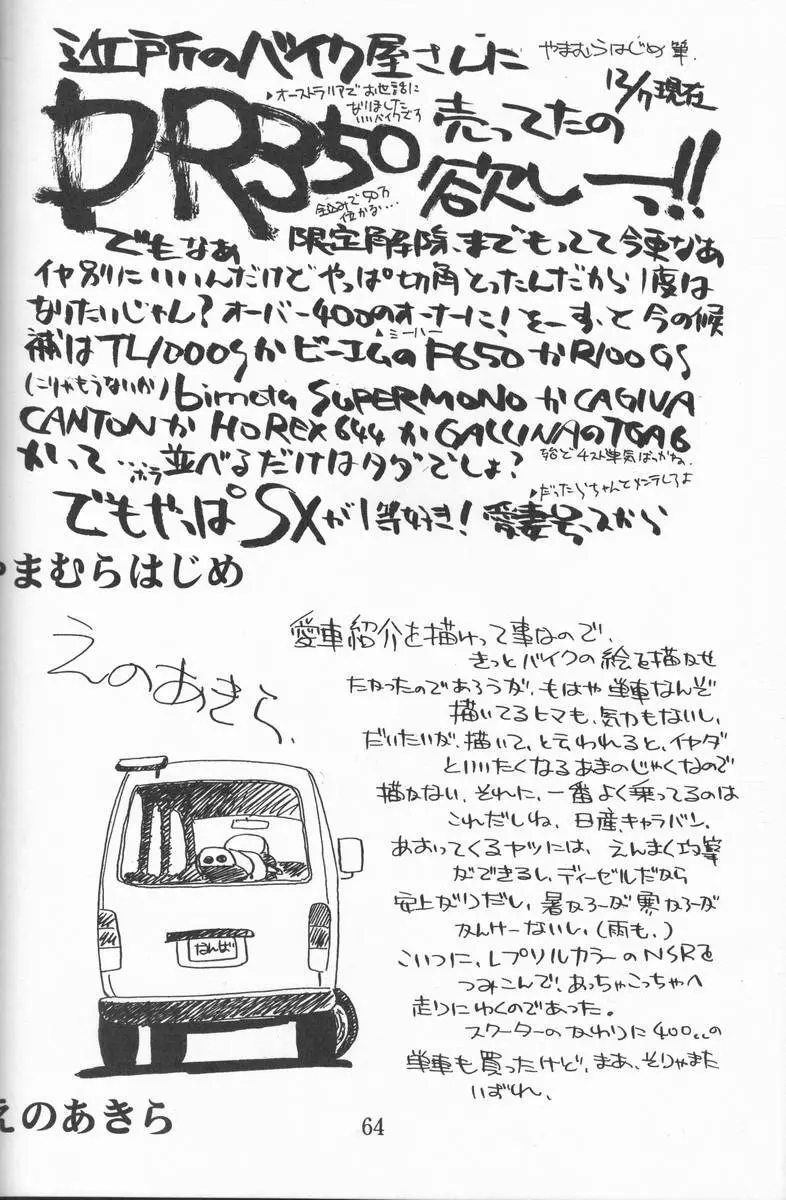 近所のバイク屋さんに
やまむらはじめ 筆.
12/17現在
▸オーストラリアでお世話に
なりました
いいバイクです
DR350
売ってたの
欲しーっ!!
全込みで50万
位かな…
でもなぁ 限定解除、までもってて今更なあ
イヤ別にいいんだけどやっぱ切角とったんだから1度は
なりたいじゃん?オーバー400のオーナーに!をーすっと今の候
▲ミーハー
補はTL1000SかビーエムのF650かR100GS
(こりゃもうないか)bimota SUPERMONOかCAGIVA
CANYONかHOREX644かGALLINAのTGA6
かって…ホラ並べるだけはタダでしょ?
だったらちゃんとメンテしろよ
でもやっぱSXが1等好き!愛妻号っスから
やまむらはじめ
えのあきら.
愛車紹介を描けって事なので、
きっとバイクの絵を描かせ
たかったのであろうが、もはや単車なんぞ
描いてるヒマも、気力もないし、
だいたいが、描いて、と云われると、イヤダ
といいたくなるあまのじゃくなので
描かない、それに、一番よく乗ってるのは
これだしね、日産、キャラバン、
あおってくるヤツには、えんまく攻撃
ができるし、ディーゼルだから
安上がりだし、暑かろーが寒かろーが
かんけーないし、(雨も、)
こいつに、レプソルカラーのNSRを
つみこんで、あっちゃこっちゃへ
走りにゆくのであった。
スクーターのかわりに400ccの
単車も買ったけど、まあ、そりゃまた
いずれ、
なんば
えのあきら
64